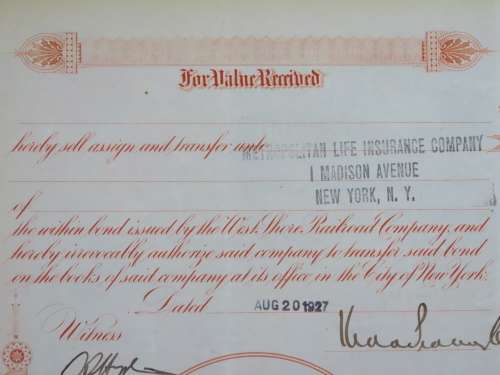 For Value Received
hereby sell assign and transfer unto METROPOLITAN LIFE INSURANCE COMPANY
1 MADISON AVENUE
NEW YORK, N. Y.
of
the within bond issued by the West Shore Railroad Company, and
hereby irrevocally authorize said company to transfer said bond
on the books of said company at its office in the City of New York.
Dated AUG 20 1927
Witness